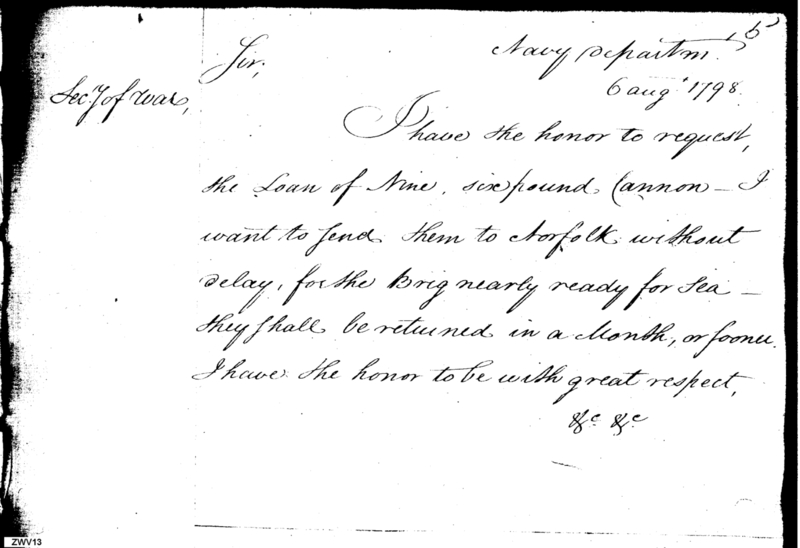 15
Sir, Navy Departm.
Secy of War, 6 aug.t 1798.
I have the honor to request,
the Loan of Nine, six pound Cannon — I
want to send them to Norfolk without
delay, for the Brig nearly ready for Sea —
they shall be returned in a Month, or sooner.
I have the honor to be with great respect,
&c. &c.
ZWV13